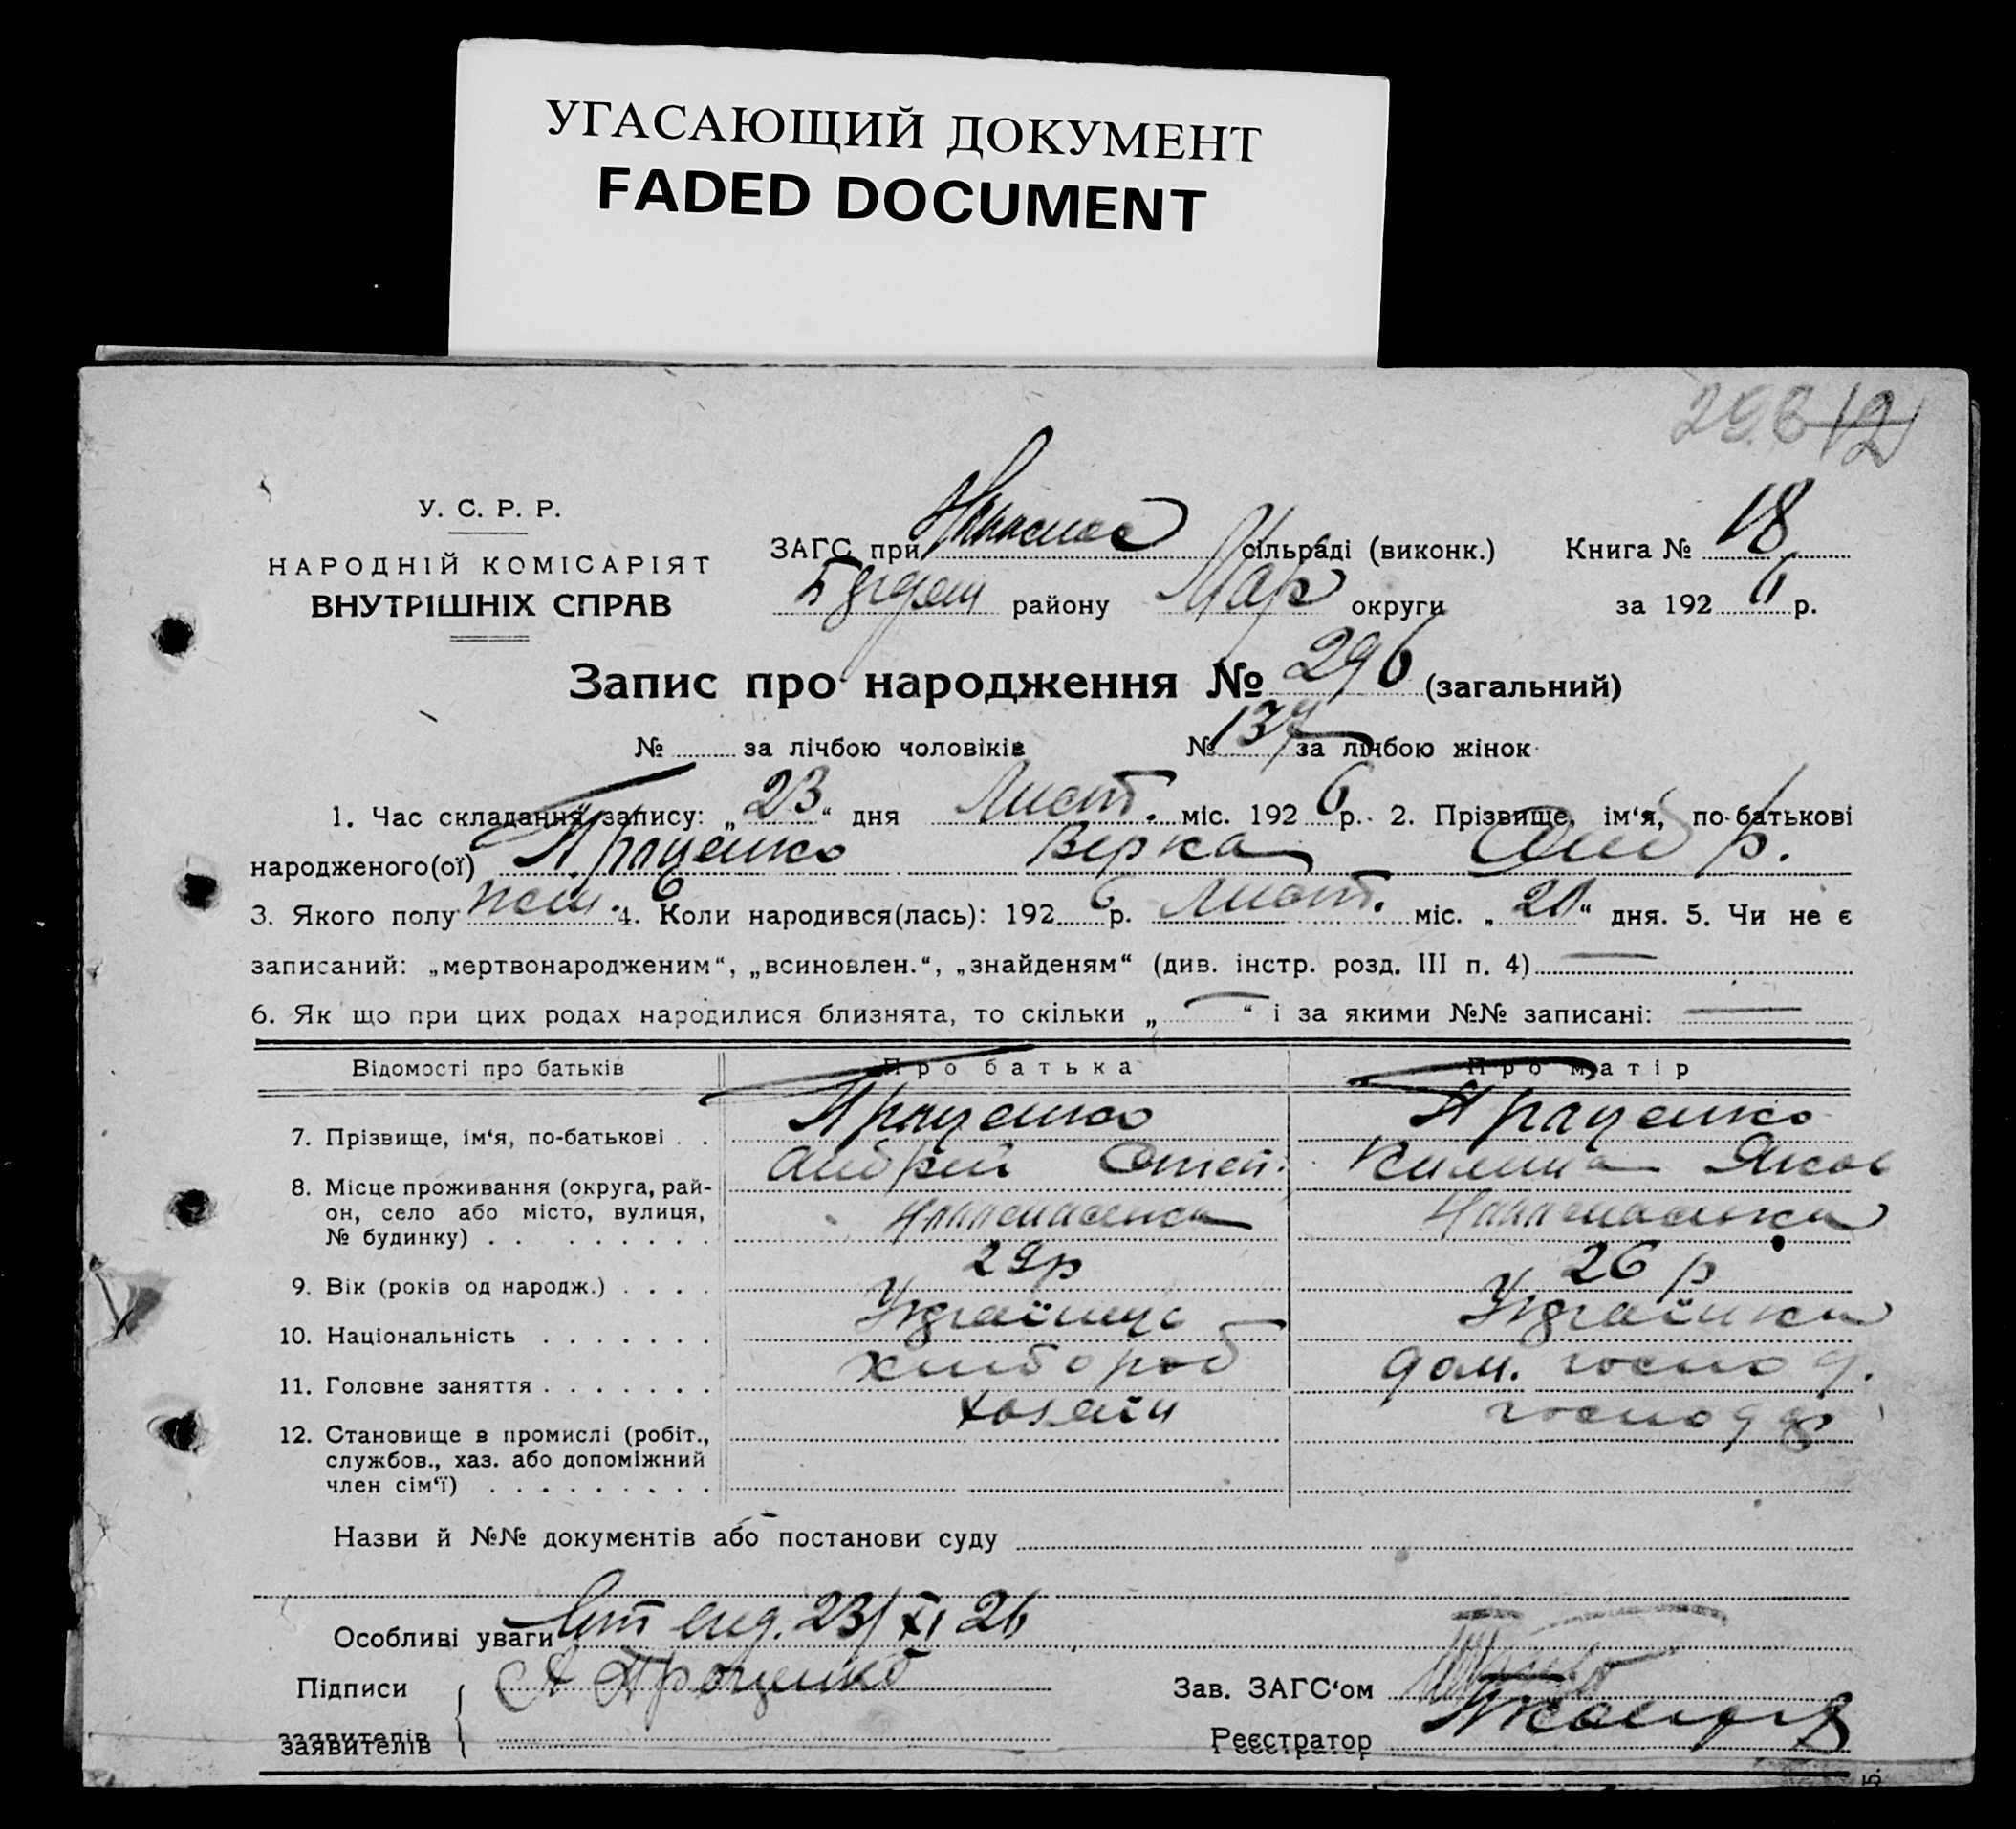 УГАСАЮЩИЙ ДОКУМЕНТ
FADED DOCUMENT
296 12
У. С. Р. Р.
НАРОДНІЙ КОМІСАРІЯТ
ВНУТРІШНІХ СПРАВ
ЗАГС при сільраді (виконк.) Книга № 18
району Мар округи за 192 6 р.
Запис про народження № 296 (загальний)
№ за лічбою чоловіків № 137 за лічбою жінок
1. Час складання запису: „ 23 “ дня Лист. міс. 192 6 р. 2. Прізвище, ім‘я, по-батькові
народженого(ої) Проценко Верка Андр.
3. Якого полу жін. 4. Коли народився(лась): 192 6 р. Лист. міс. „ 20 “ дня. 5. Чи не є
записаний: „мертвонародженим“, „всиновлен.“, „знайденям“ (див. інстр. розд. III п. 4) —
6. Як що при цих родах народилися близнята, то скільки „ — “ і за якими №№ записані: —
Відомості про батьків Про батька Про матір
7. Прізвище, ім‘я, по-батькові . . Проценко Проценко
Андрей Степ. Килина Яков
8. Місце проживання (округа, рай-
он, село або місто, вулиця,
№ будинку) . . . . . . . .
9. Вік (років од народж.) . . . . 29р 26 р
10. Національність . . . . . . . Українець Українка
11. Головне заняття . . . . . . . хлібороб дом. господ.
12. Становище в промислі (робіт., хозяїн
службов., хаз. або допоміжний
член сім‘ї) . . . . . . . . .
Назви й №№ документів або постанови суду
Особливі уваги 23/XI 26
Підписи А Проценко Зав. ЗАГС‘ом
заявителів Реєстратор